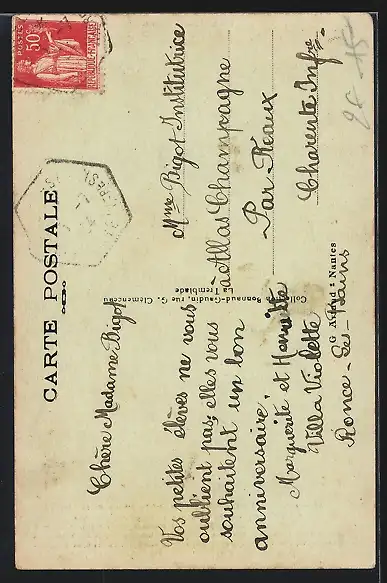 CARTE POSTALE
POSTES
50c
REPUBLIQUE FRANÇAISE
Chère Madame Bigot
Vos petites élèves ne vous
oublient pas; elles vous
souhaitent un bon
anniversaire.
Marguerite et Henriette
Villa Violette
Ronce-les-Bains
Collection Bonnaud-Gaudin, rue G. Clemenceau
La Tremblade
G Artaud : Nantes
Mme Bigot Institutrice
à Allas Champagne
Par Réaux
Charente Infre